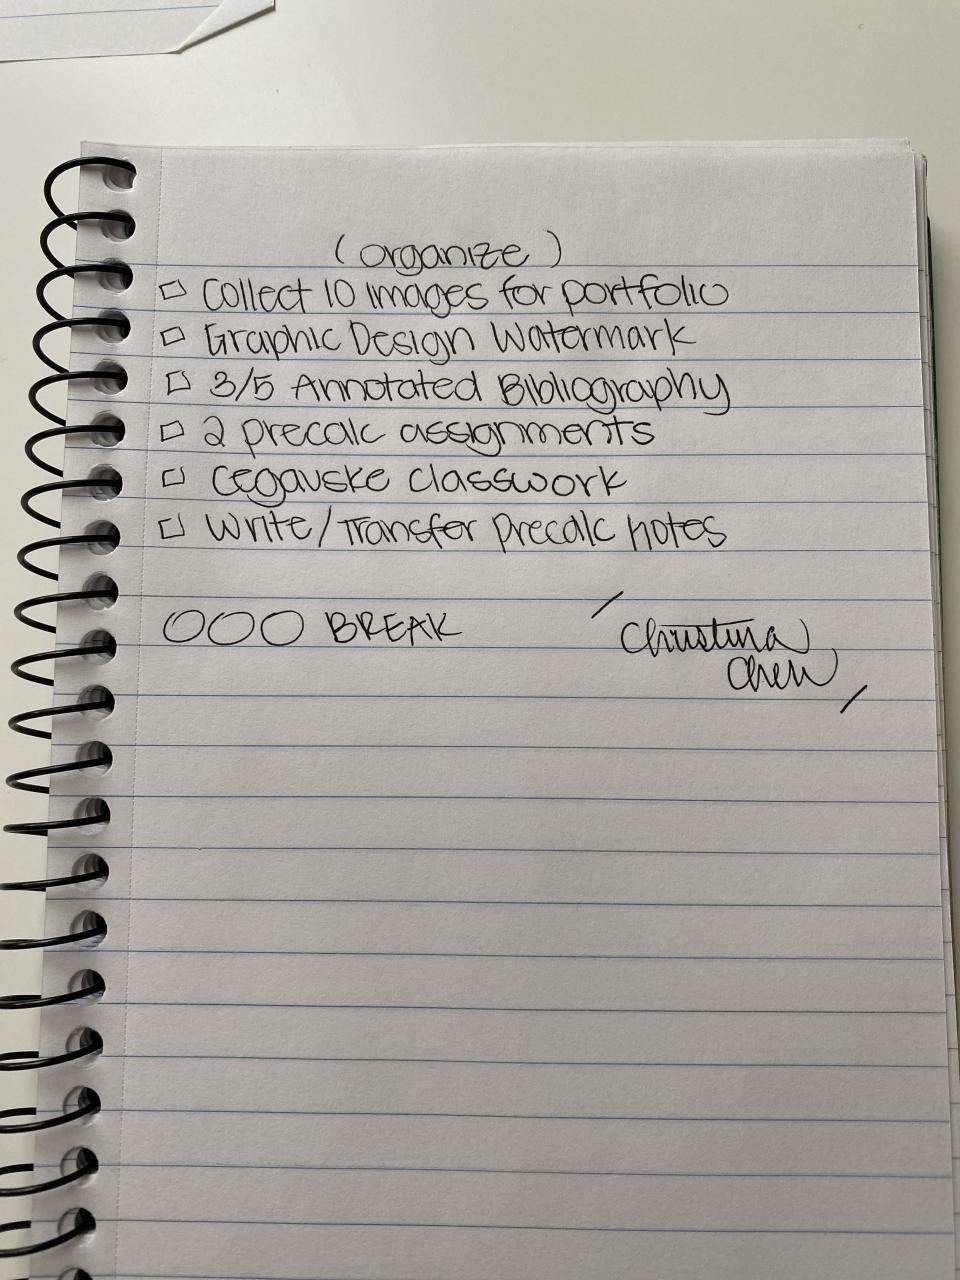 (organize)
Collect 10 images for portfolio
Graphic Design Watermark
3/5 Annotated Bibliography
2 precalc assignments
Cegavske classwork
Write/Transfer precalc notes
BREAK
Christina
Chen